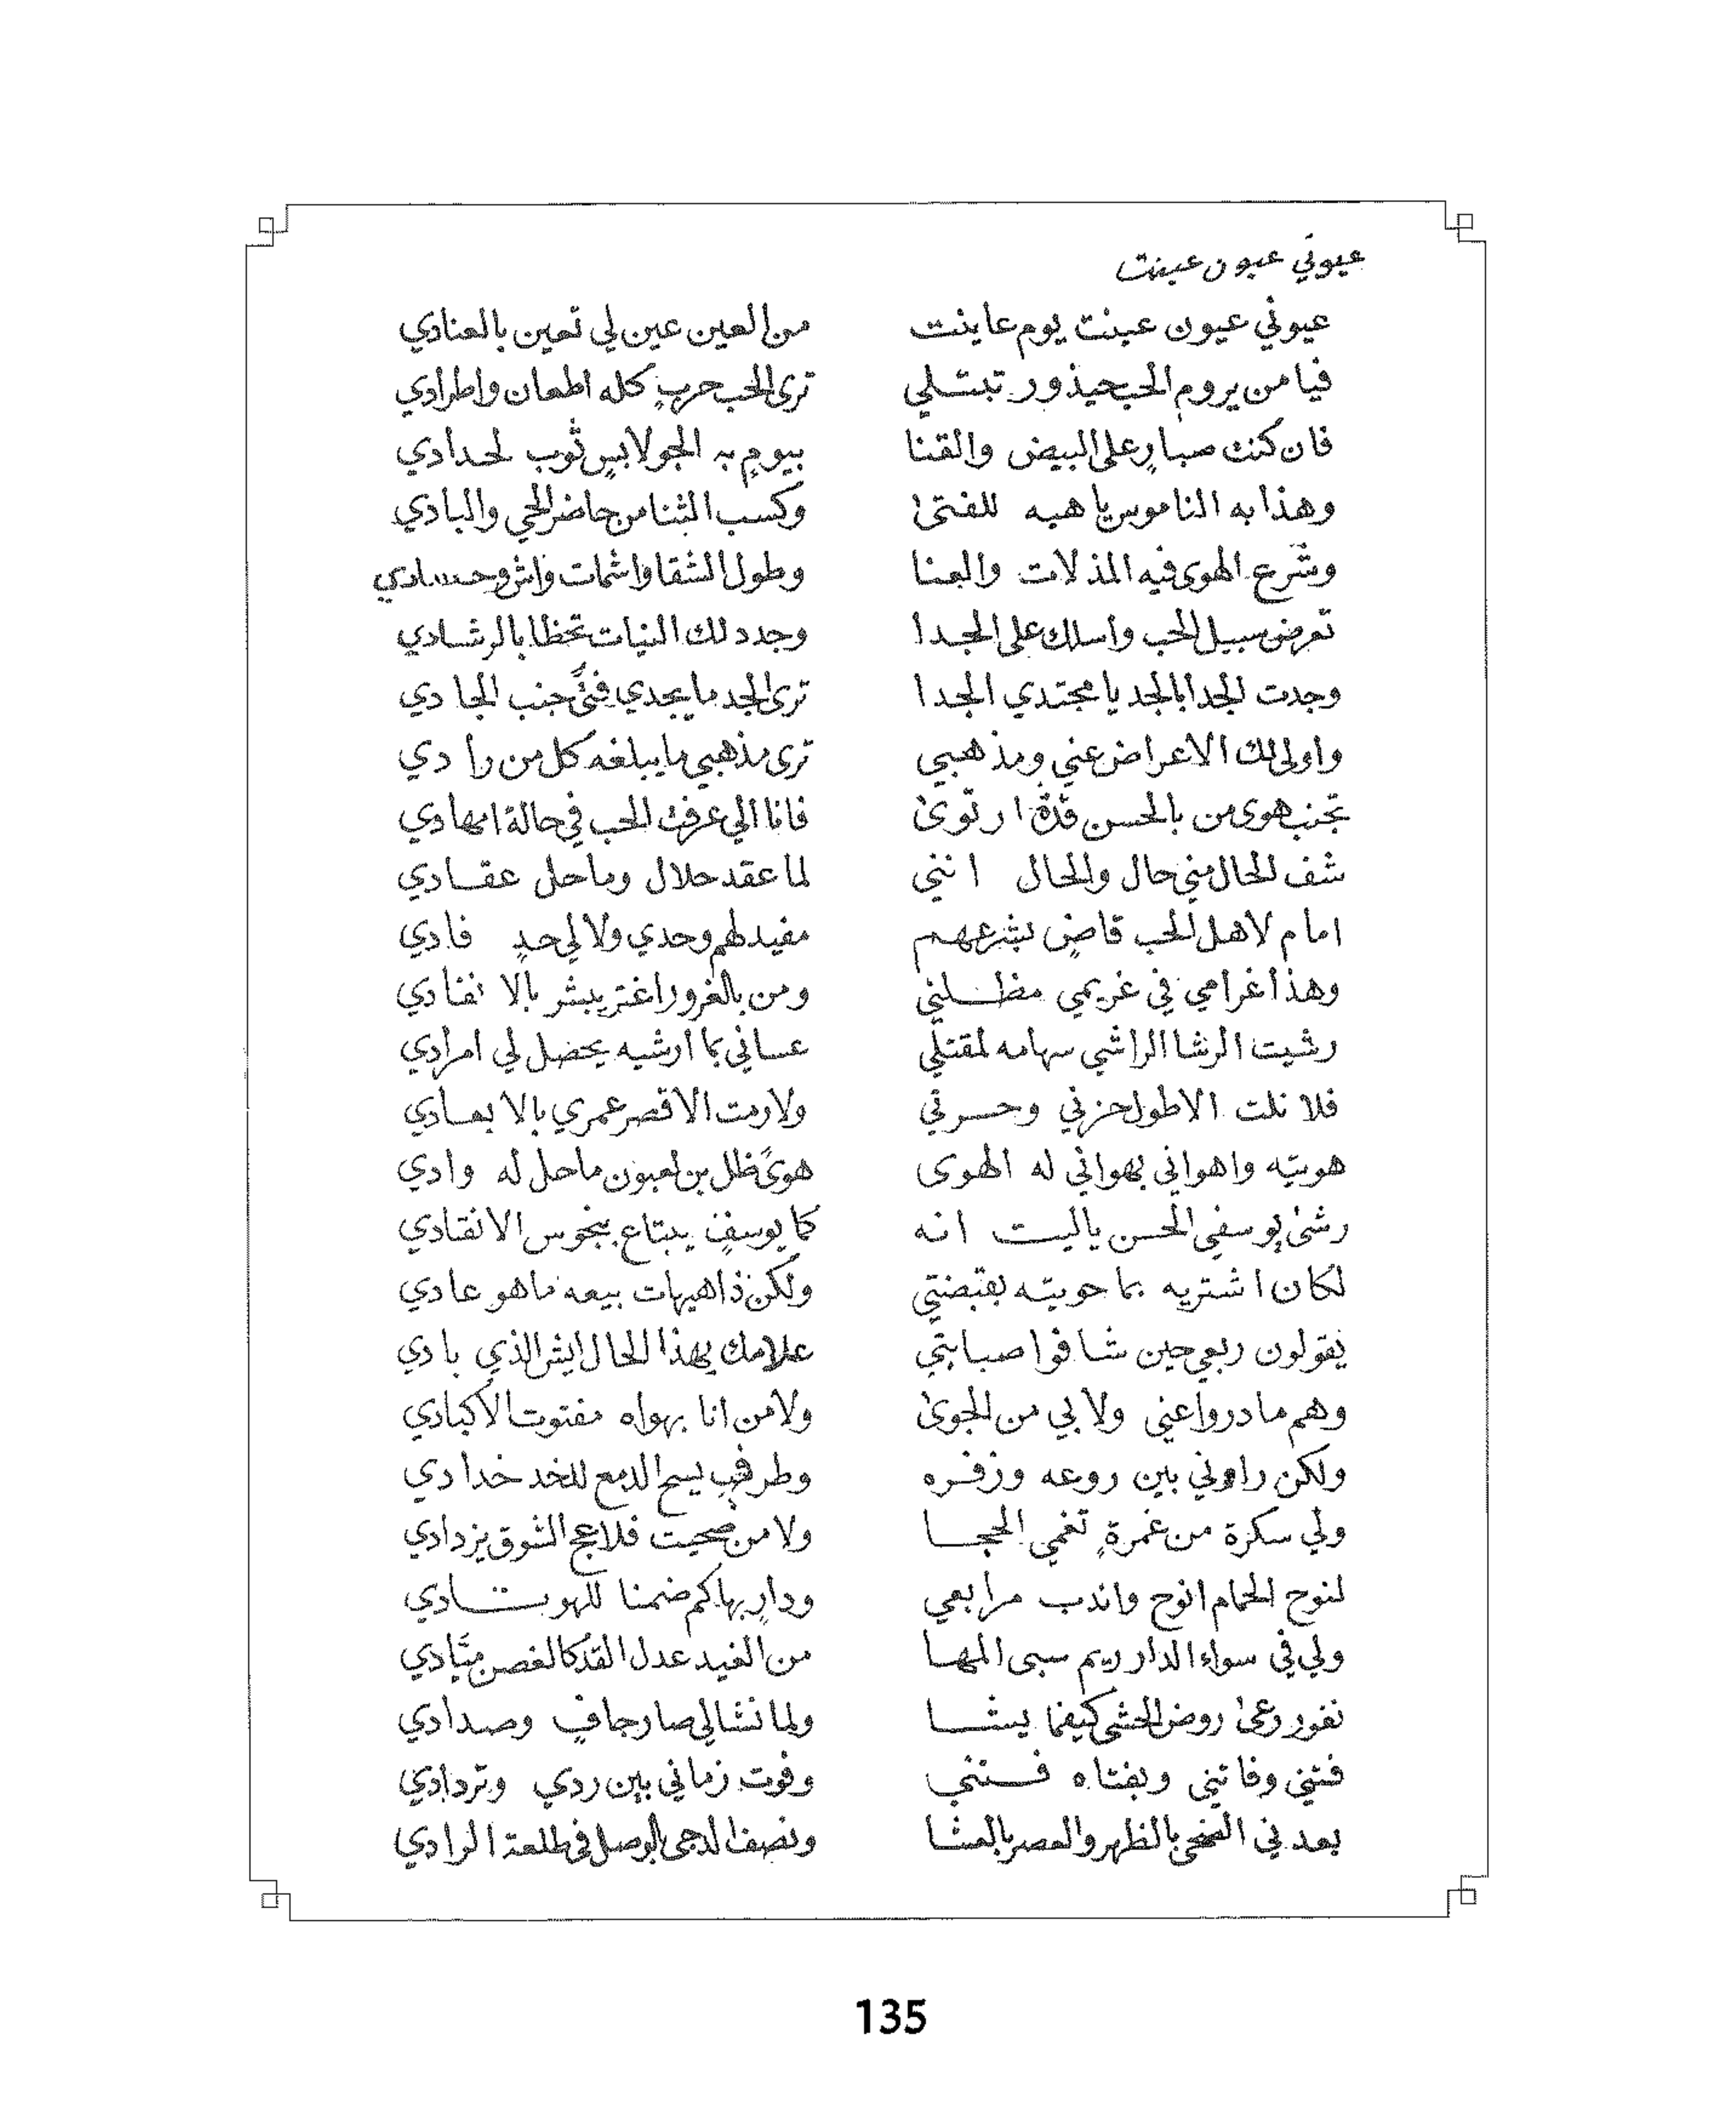 عيوني عيون عينت
عيوني عيون عينت يوم عاينت من العين عين لي تعين بالعنادي
فيا من يروم الحب حيذور تبتلي ترى الحب حربٍ كله اطعان واطرادي
فان كنت صبارٍ على البيض والقنا بيومٍ به الجو لابسٍ ثوب لحدادي
وهذا به الناموس يا هيه للفتى وكسب الثنا من حاضر الحي والبادي
وشرع الهوى فيه المذلات والعنا وطول الشقا واشمات واشٍ وحسادي
تعرض سبيل الحب واسلك على الجدا وجدد لك النيات تحظا بالرشادي
وجدت الجدا بالجد يا مجتدي الجدا ترى الجد ما يجدي جنب الجادي
واولى لك الاعراض عني ومذهبي ترى مذهبي ما يبلغه كل من رادي
تجنب هوى من بالحسن ارتوى فانا الي عرفت الحب في حالة امهادي
شف الحال مني حال والحال انني لما عقد حلال وما حل عقادي
امام لاهل الحب قاضٍ بشرعهم مفيد لهم وحدي ولا لي حدٍ فادي
وهذا غرامي في غريمي مظلني ومن بالغرور اغتر يبشر بالانفادي
رشيت الرشا الراشي سهامه لمقتلي عساني بما ارشيه يحصل لي امرادي
فلا نلت الا طول حزني وحسرتي ولا رمت الا قصر عمري بالابعادي
هويته واهواني بهواني له الهوى هوىً ظل بن لعبون ما حل له وادي
رشىٰ يوسفي الحسن ياليت انه كما يوسفٍ يبتاع بنجوس الانقادي
لكان اشتريه بما حويته بقبضتي ولكن ذا هيهات بيعه ما هو عادي
يقولون ربعي حين شافوا صبابتي علامك بهذا الحال ايش الذي بادي
وهم ما دروا عني ولا بي من الجوىٰ ولا من انا بهواه مفتوت الاكبادي
ولكن راوني بين روعه وزفره وطرفي يسح الدمع للخد خدادي
ولي سكرة من غمرةٍ تغمي الحجا ولا من صحيت فلاعج الشوق يزدادي
لنوح الحمام انوح واندب مرابعي ودارٍ بها كم ضمنا للهوتادي
ولي في سواء الدار ريم سبى المها من الغيد عدل القد كالغصن ميّادي
نفور رعىٰ روض الحشى كيفما يشا ولما نشا لي صار جافٍ وصدادي
فتني وفاتني وبفتاه فتني وفوت زماني بين ردي وتردادي
يعدني الضحى بالظهر والعصر بالعشا ونصف الدجى بالوصل في طلعة الرادي
135